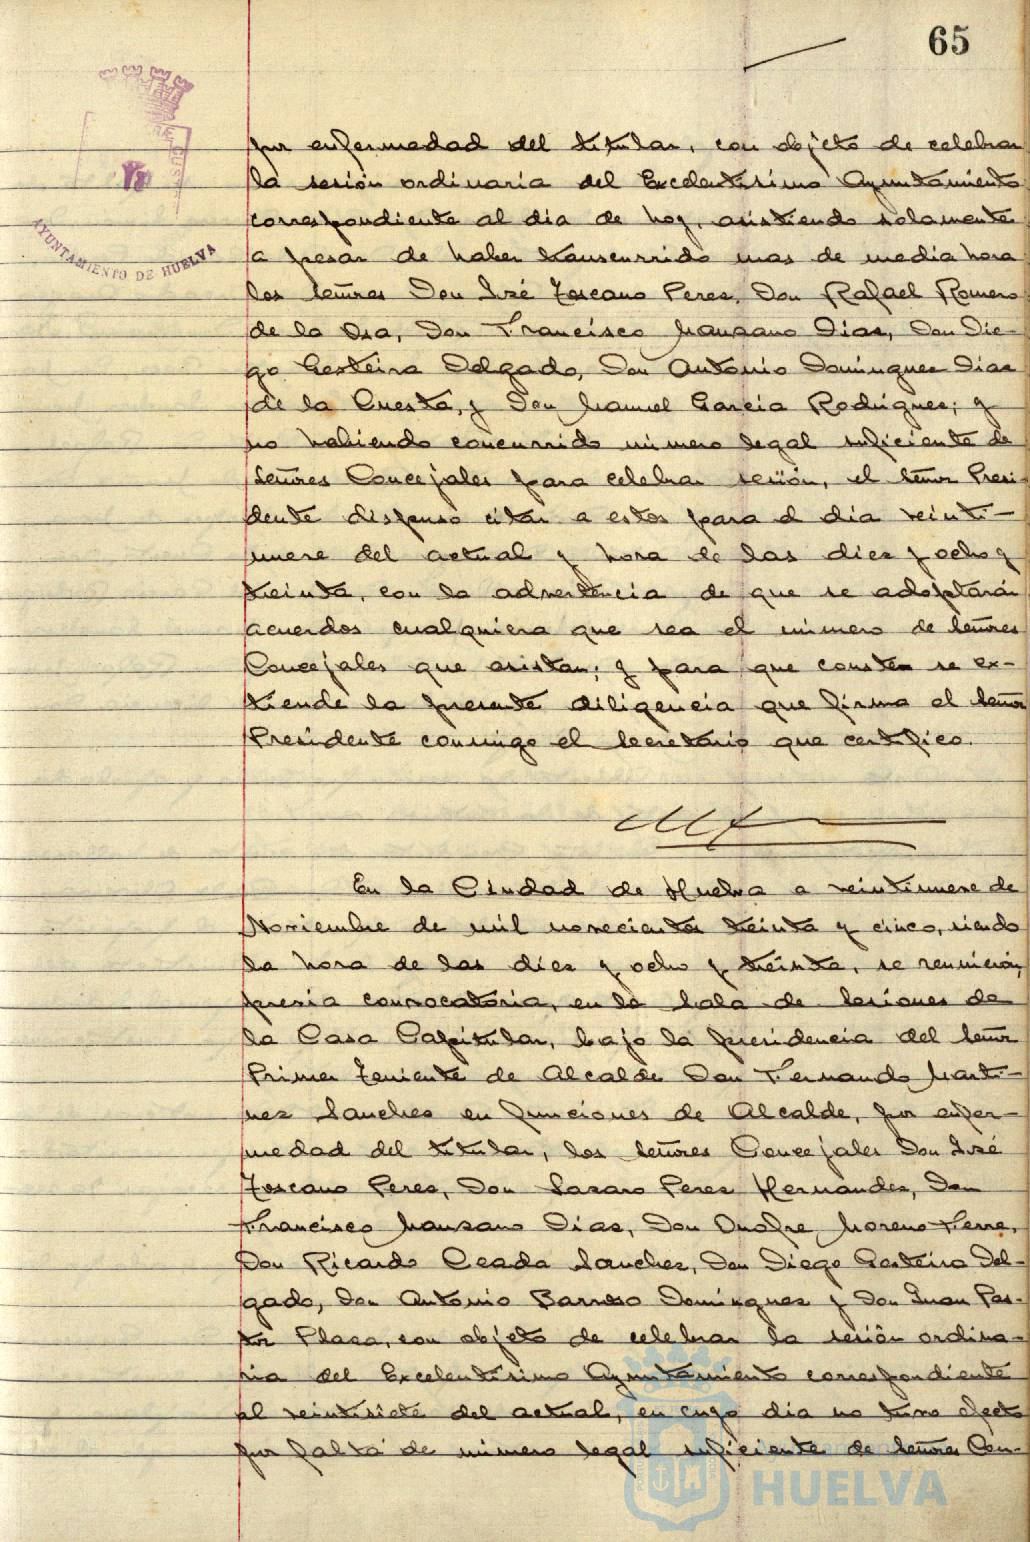 65
AYUNTAMIENTO DE HUELVA
por enfermedad del titular, con objeto de celebrar
la sesión ordinaria del Excelentísimo Ayuntamiento
correspondiente al dia de hoy, asistiendo solamente
a pesar de haber transcurrido mas de media hora
los señores Don José Toscano Perez, Don Rafael Romero
de la Osa, Don Francisco Manzano Dias, Don Die-
go Gesteira Delgado, Don Antonio Dominguez Dias
de la Cuesta, y Don Manuel Garcia Rodriguez; y
no habiendo concurrido número legal suficiente de
señores Concejales para celebrar sesión, el señor Presi-
dente dispuso citar a estos para el dia veinti-
nueve del actual y hora de las diez y ocho y
treinta, con la advertencia de que se adoptarán
acuerdos cualquiera que sea el número de señores
Concejales que asistan; y para que conste se ex-
tiende la presente diligencia que firma el señor
Presidente conmigo el Secretario que certifico.
En la Ciudad de Huelva a veintinueve de
Noviembre de mil novecientos treinta y cinco, siendo
la hora de las diez y ocho y treinta, se reunieron,
previa convocatoria, en la Sala de Sesiones de
la Casa Capitular, bajo la presidencia del señor
Primer Teniente de Alcalde Don Fernando Marti-
nez Sanchez en funciones de Alcalde, por enfer-
medad del titular, los señores Concejales Don José
Toscano Perez, Don Lazaro Perez Hernandez, Don
Francisco Manzano Dias, Don Onofre Moreno Ferre,
Don Ricardo Ceada Sanchez, Don Diego Gesteira Del-
gado, Don Antonio Barroso Dominguez y Don Juan Pas-
tor Plaza, con objeto de celebrar la sesión ordina-
ria del Excelentisimo Ayuntamiento correspondiente
al veintisiete del actual, en cuyo dia no tuvo efecto
por falta de número legal suficiente de señores Con-
HUELVA